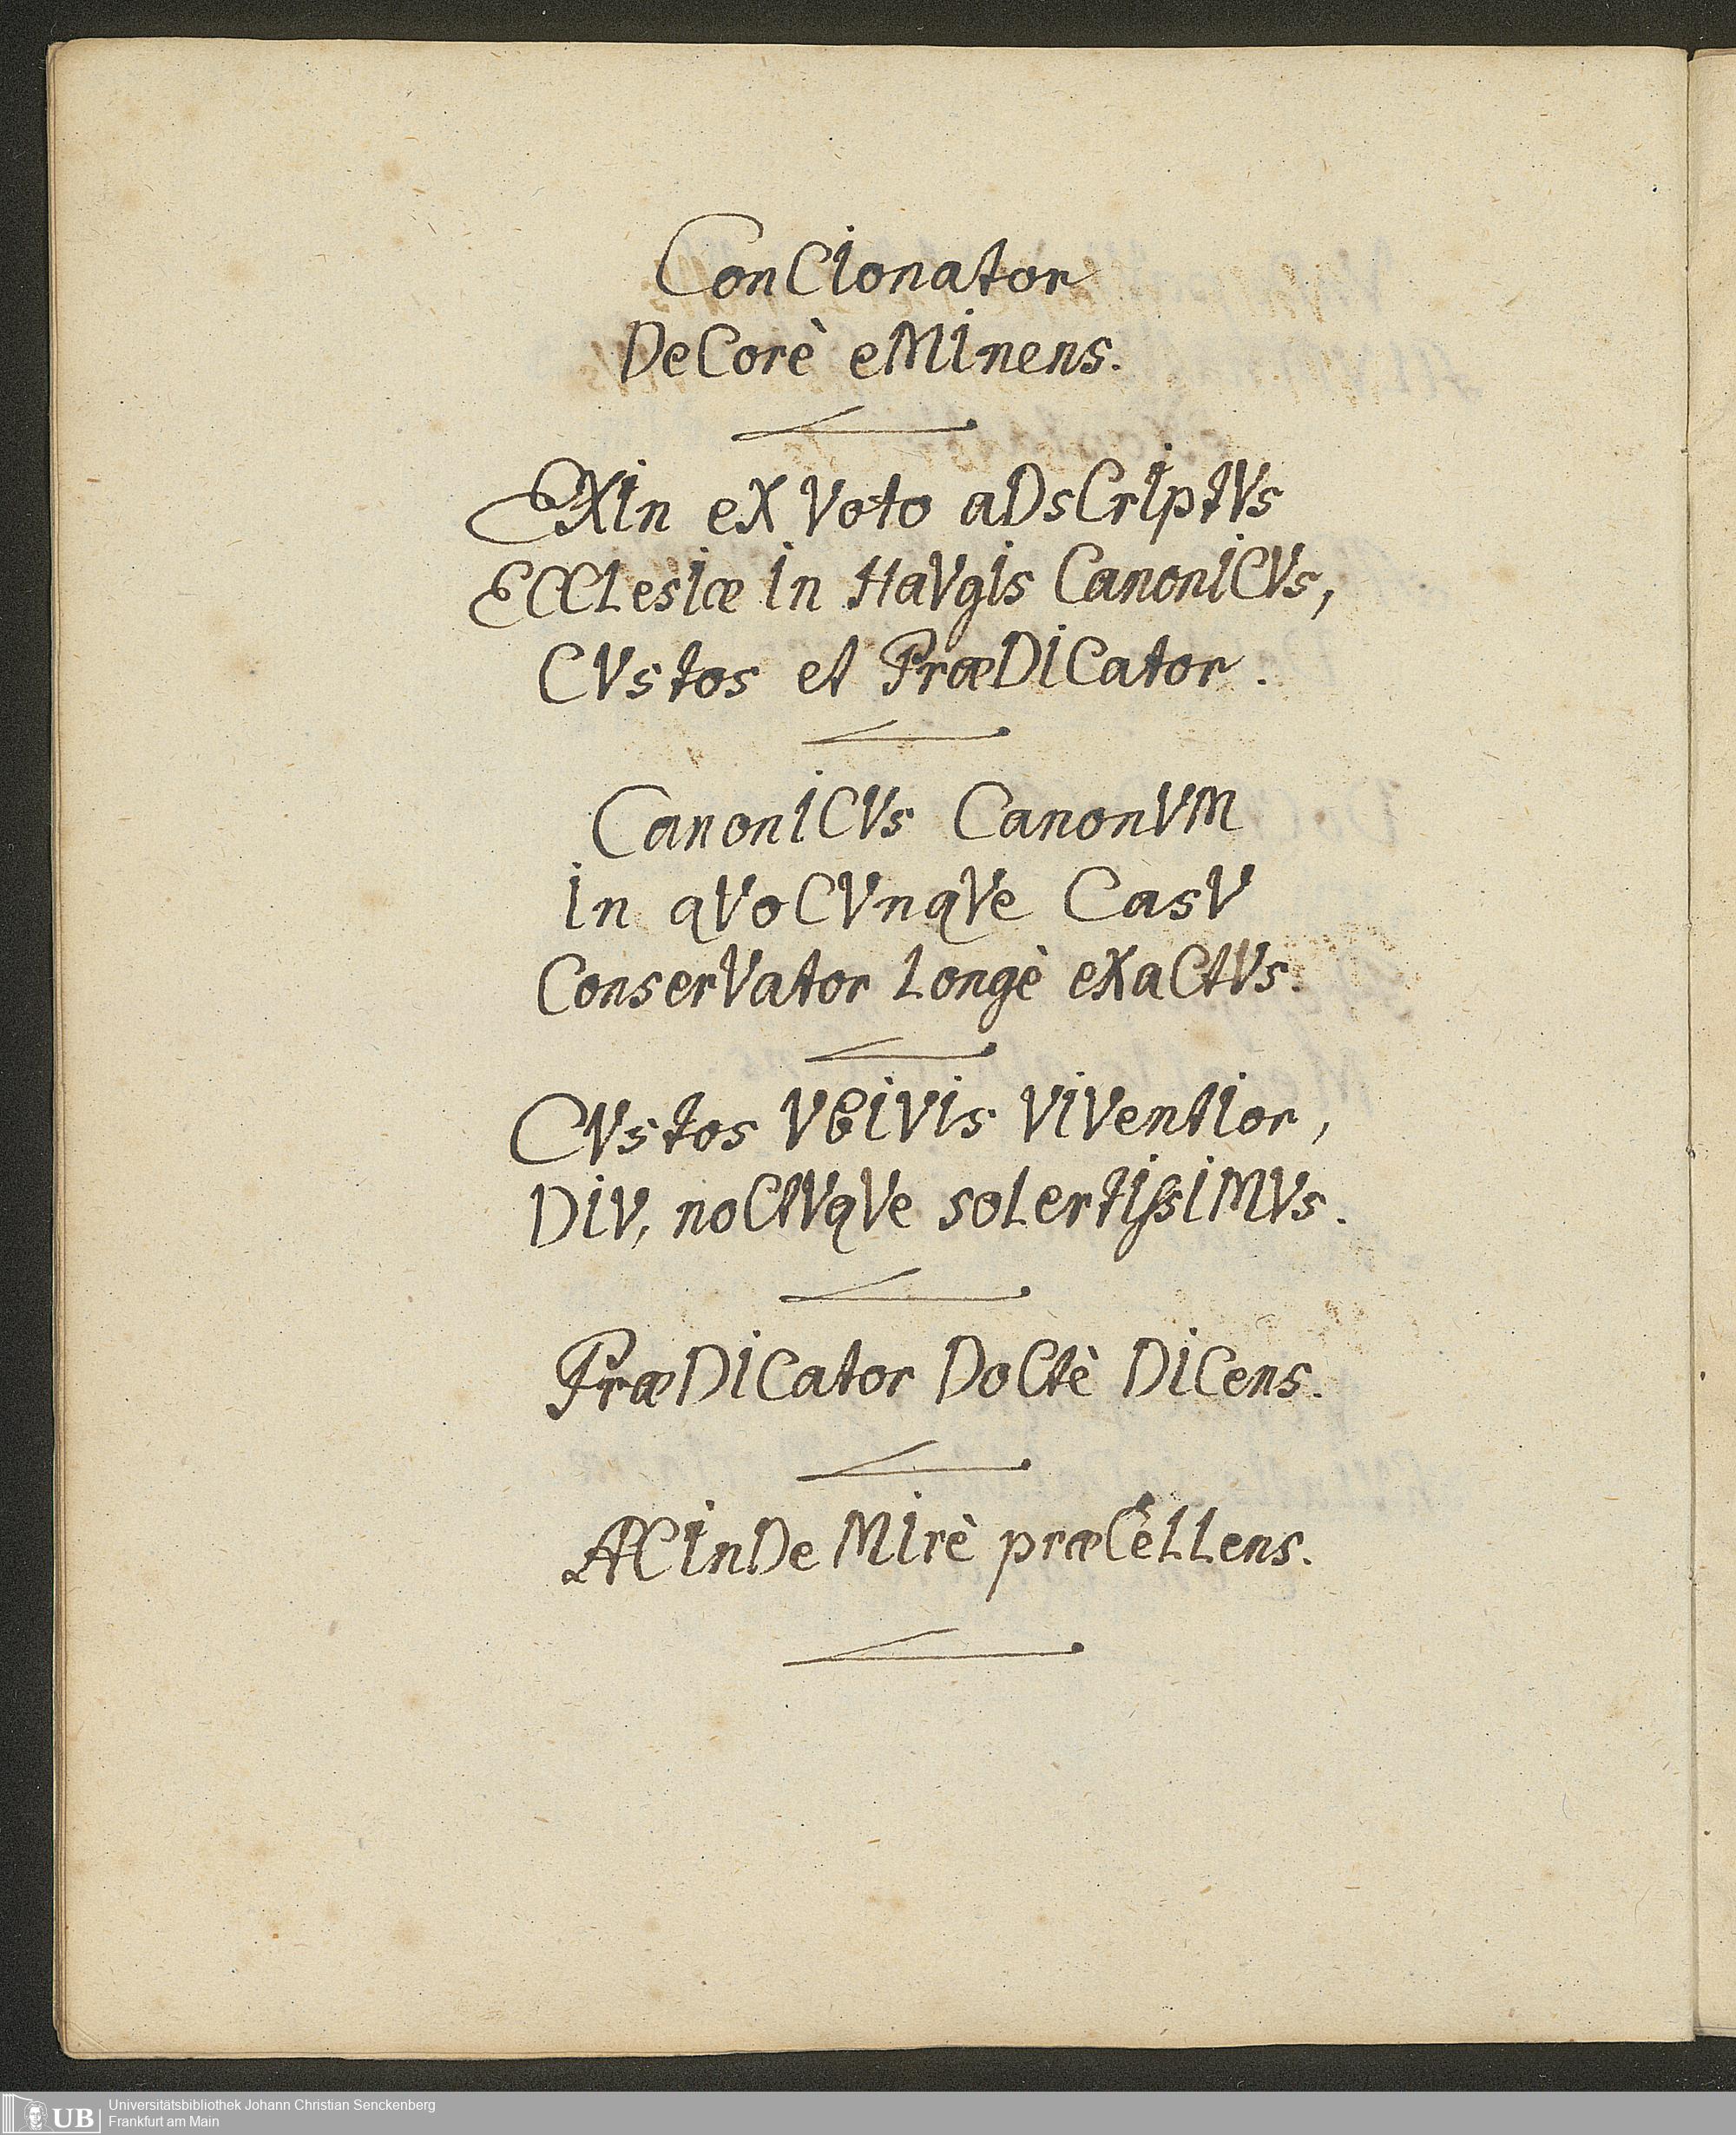 ConCIonator
DeCorè eMInens.
EXIn eX Voto aDsCrIptVs
ECCLesIæ In HaVgIs CanonICVs,
CVstos et PræDICator.
CanonICVs CanonVM
In qVoCVnqVe CasV
ConserVator Longè eXaCtVs.
CVstos VbIVIs VIVentIor,
DIV, noCtVqVe soLertIſsIMVs.
PræDICator DoCtè DICens.
ACInDe MIrè præCeLLens.
UB
Universitätsbibliothek Johann Christian Senckenberg
Frankfurt am Main